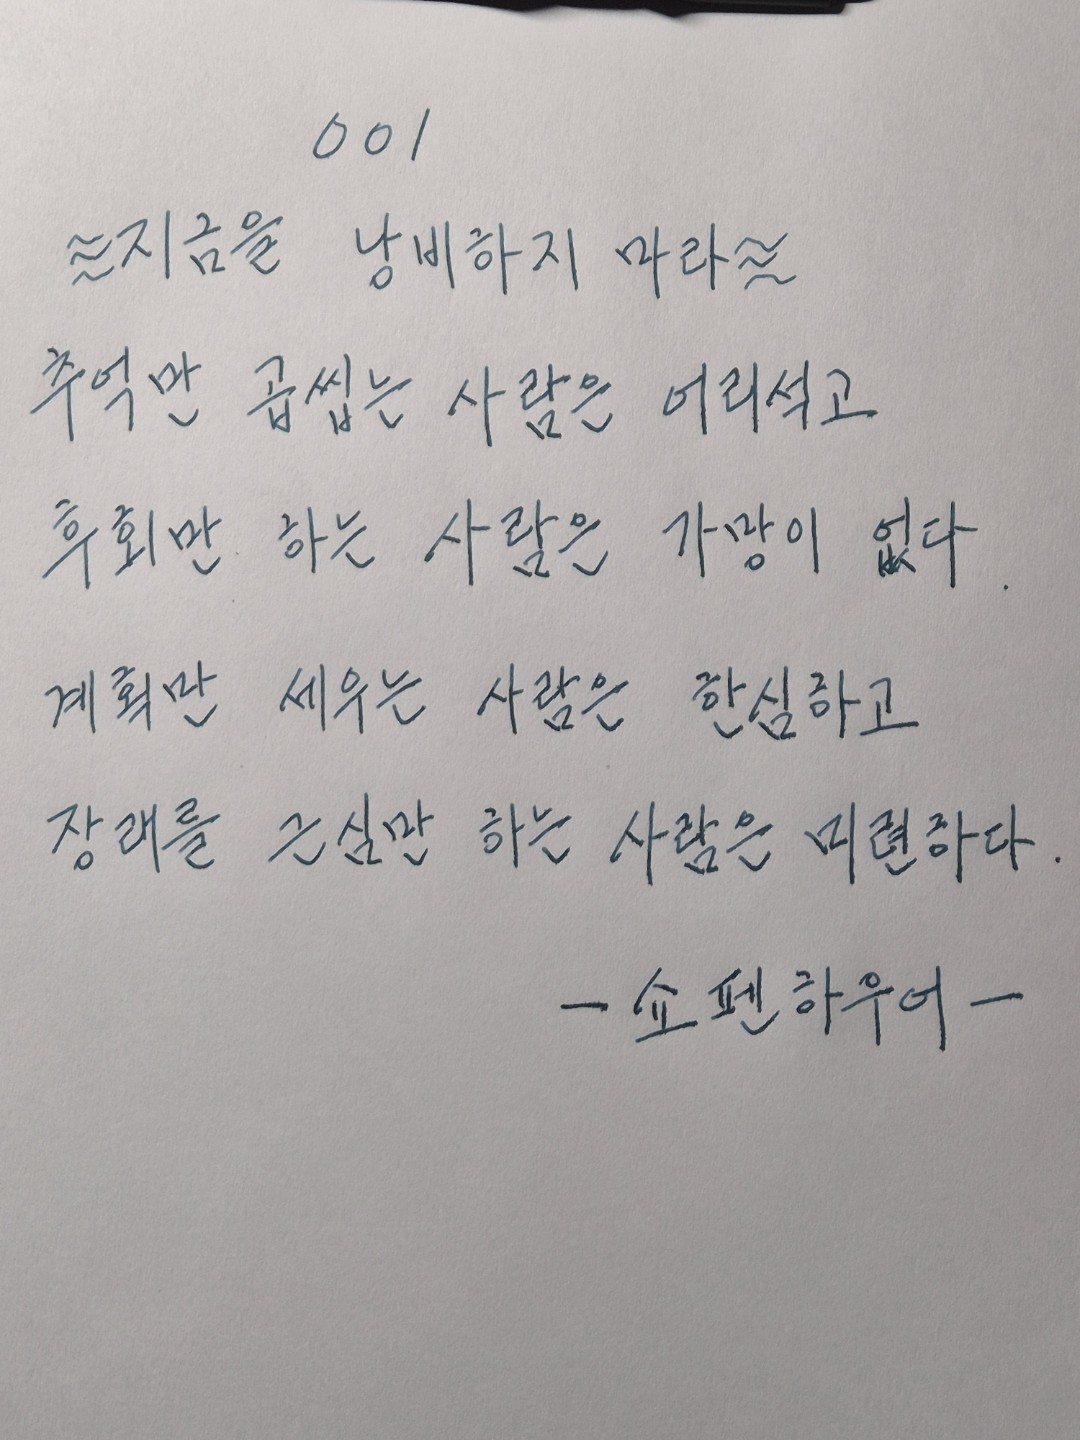 001
≈지금을 낭비하지 마라≈
추억만 곱씹는 사람은 어리석고
후회만 하는 사람은 가망이 없다.
계획만 세우는 사람은 한심하고
장래를 근심만 하는 사람은 미련하다.
- 쇼펜하우어 -